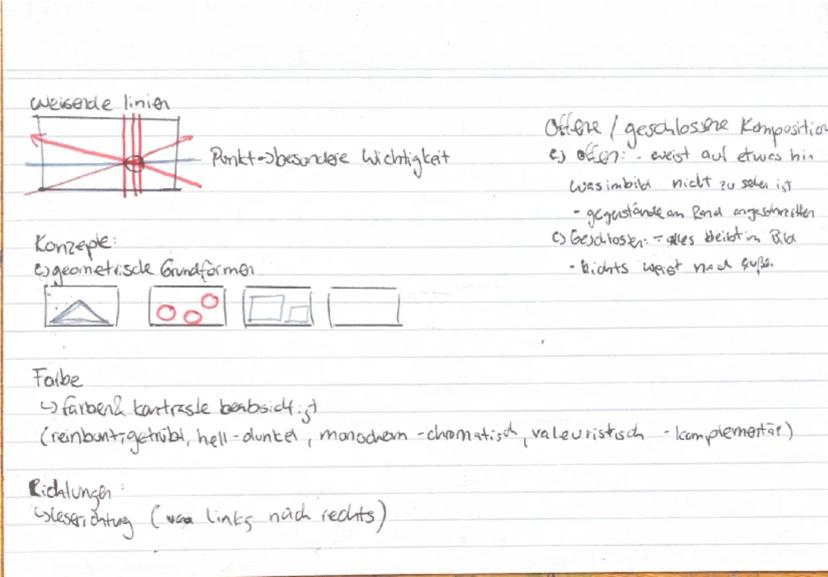 weisende linien
Punkt → besondere Wichtigkeit
Konzepte:
↳ geometrische Grundformen
Farbe
↳ farben & kontraste beabsichtigt
(reinbunt-getrübt, hell-dunkel, monochrom-chromatisch, valeuristisch - komplementär)
Richtungen:
↳ leserichtung (von links nach rechts)
Offene / geschlossene Komposition
↳ offen: - weist auf etwas hin
was im bild nicht zu sehen ist
- gegenstände am Rand angeschnitten
↳ Geschlossen: - alles bleibt im Bild
- Nichts weist nach außen